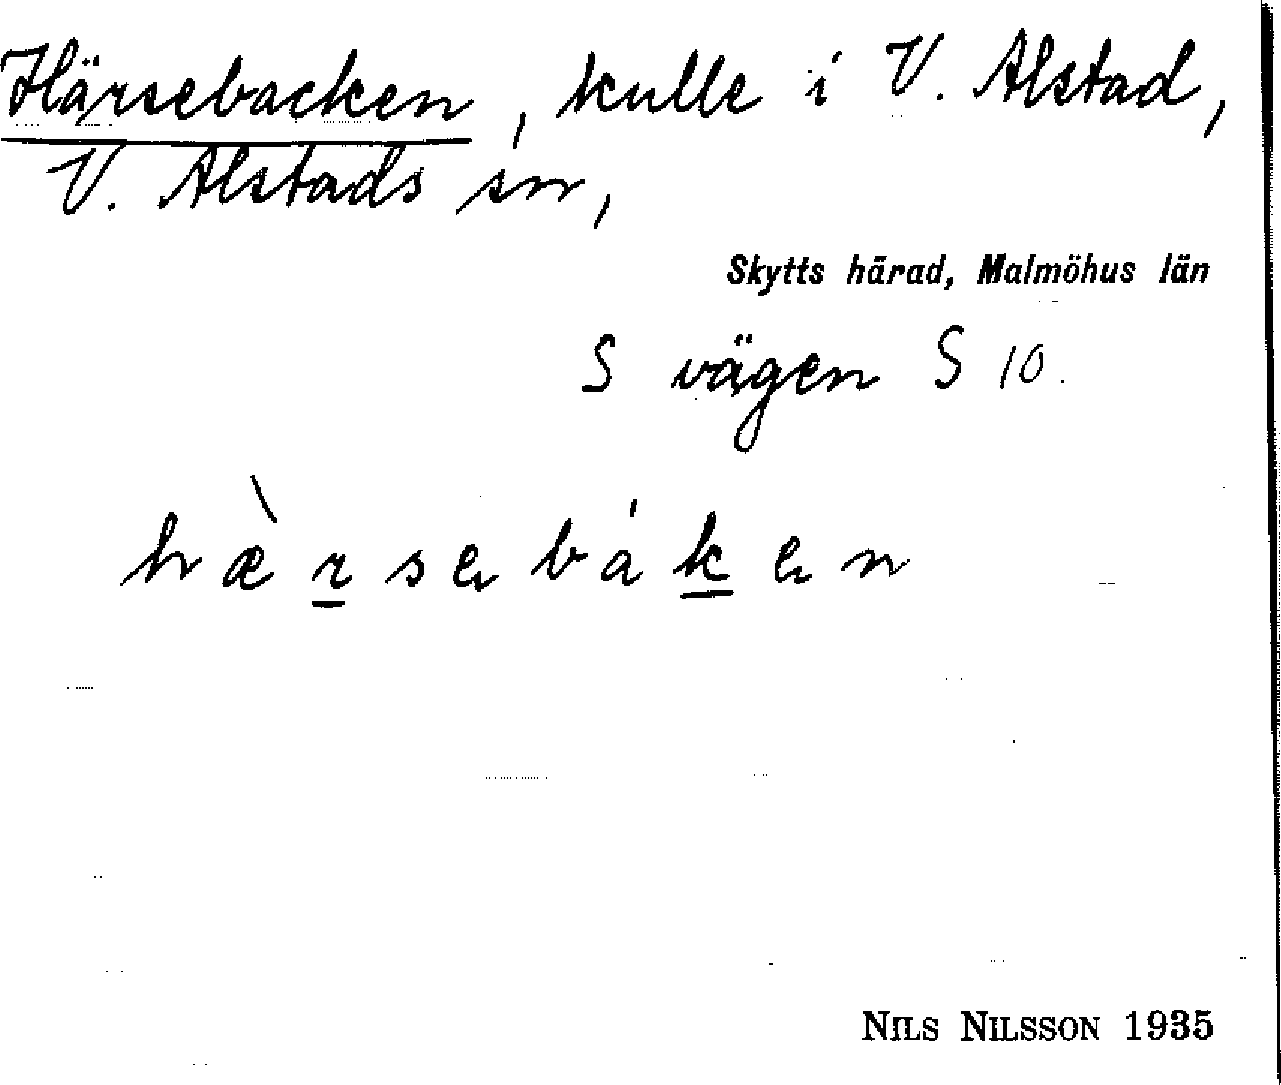 Härsebacken, kulle i V. Alstad,
V. Alstads sn,
Skytts härad, Malmöhus län
S vägen S 10.
hæ̀rsebáken
NILS NILSSON 1935